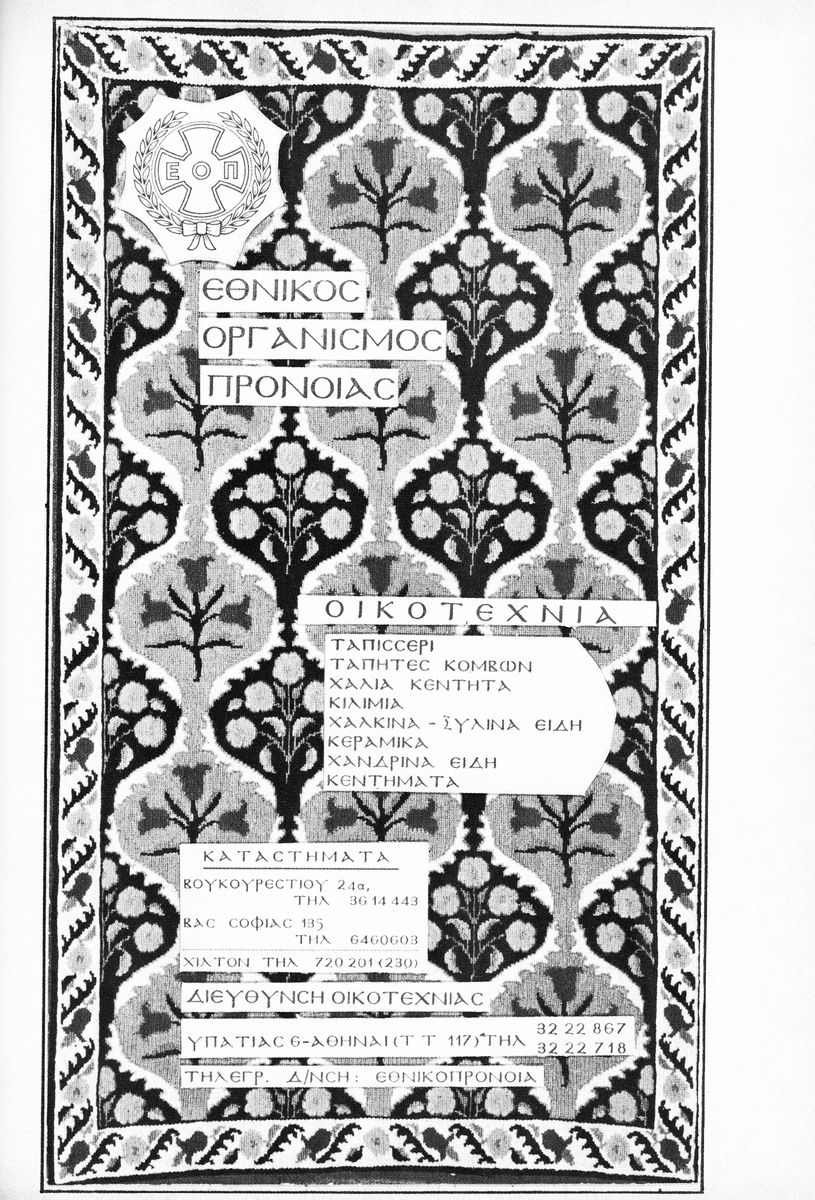 Ε Ο Π
ΕΘΝΙΚΟC
ΟΡΓΑΝΙCΜΟC
ΠΡΟΝΟΙΑC
ΟΙΚΟΤΕΧΝΙΑ
ΤΑΠΙCCΕΡΙ
ΤΑΠΗΤΕC ΚΟΜΒωΝ
ΧΑΛΙΑ ΚΕΝΤΗΤΑ
ΚΙΛΙΜΙΑ
ΧΑΛΚΙΝΑ - ΞΥΛΙΝΑ ΕΙΔΗ
ΚΕΡΑΜΙΚΑ
ΧΑΝΔΡΙΝΑ ΕΙΔΗ
ΚΕΝΤΗΜΑΤΑ
ΚΑΤΑCΤΗΜΑΤΑ
ΒΟΥΚΟΥΡΕCΤΙΟΥ 24α,
ΤΗΛ 36 14 443
ΒΑC CΟΦΙΑC 135
ΤΗΛ 6460603
ΧΙΛΤΟΝ ΤΗΛ 720 201 (230)
ΔΙΕΥΘΥΝCΗ ΟΙΚΟΤΕΧΝΙΑC
ΥΠΑΤΙΑC 6-ΑΘΗΝΑΙ (Τ Τ 117) ΤΗΛ 32 22 867
32 22 718
ΤΗΛΕΓΡ. Δ/ΝCΗ: ΕΘΝΙΚΟΠΡΟΝΟΙΑ